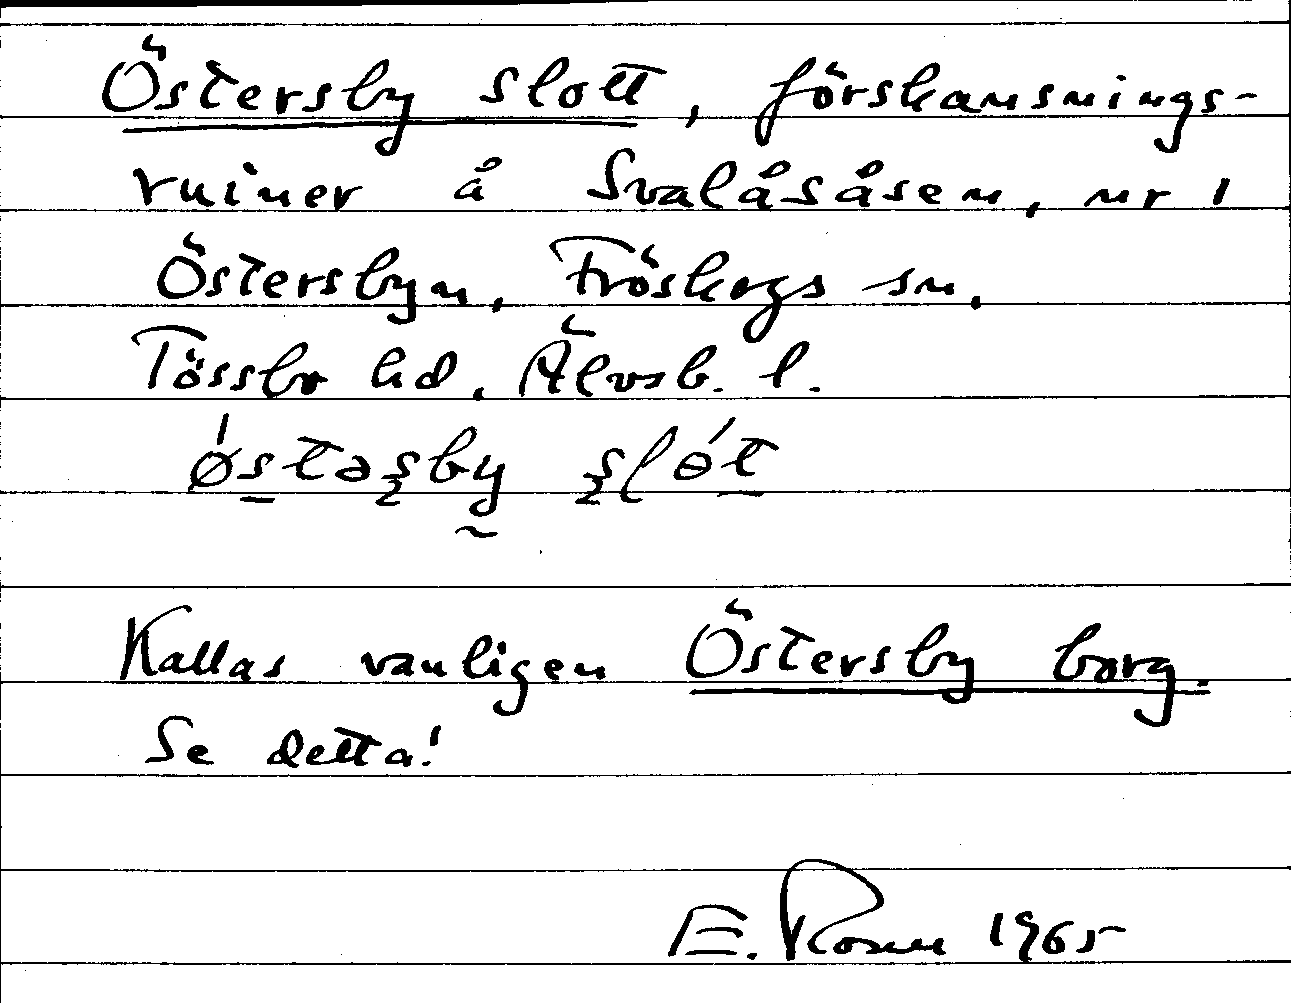 Östersby slott, förskansnings-
ruiner å Svalåsåsen, nr 1
Östersbyn, Fröskogs sn.
Tössbo hd, Älvsb. l.
Kallas vanligen Östersby borg.
Se detta!
E. Rosen 1965